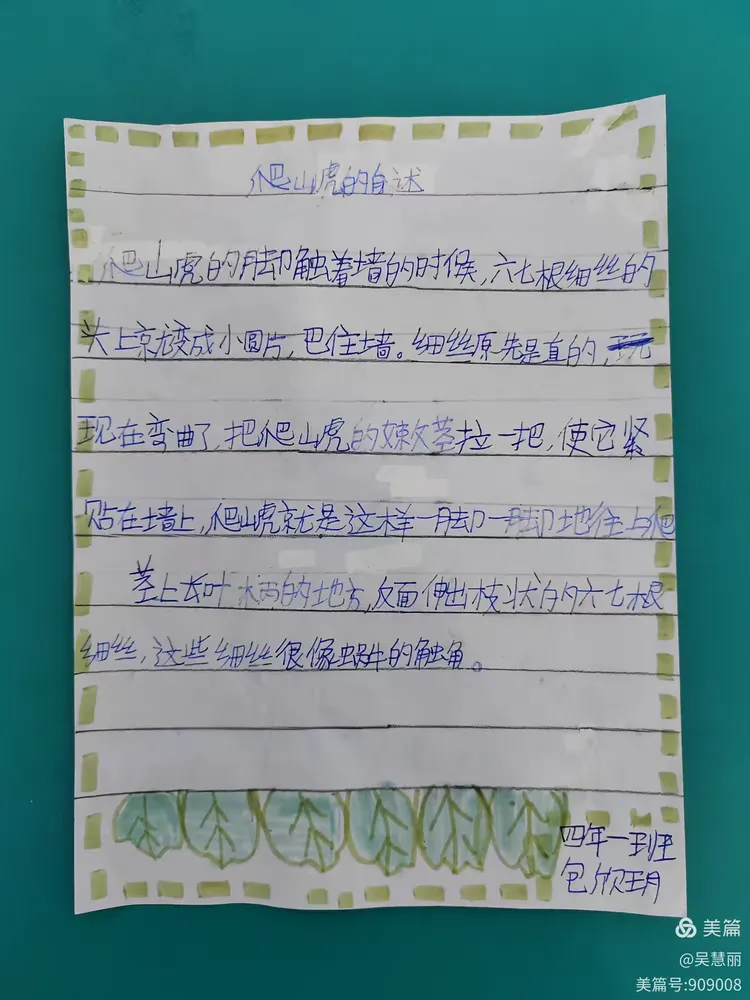 爬山虎的自述
爬山虎的脚触着墙的时候,六七根细丝的
头上就变成小圆片,巴住墙。细丝原先是直的,
现在弯曲了,把爬山虎的嫩茎拉一把,使它紧
贴在墙上,爬山虎就是这样一脚一脚地往上爬
茎上长叶柄的地方,反面伸出枝状的六七根
细丝,这些细丝很像蜗牛的触角。
四年一班
包
美篇
@吴慧丽
美篇号:909008